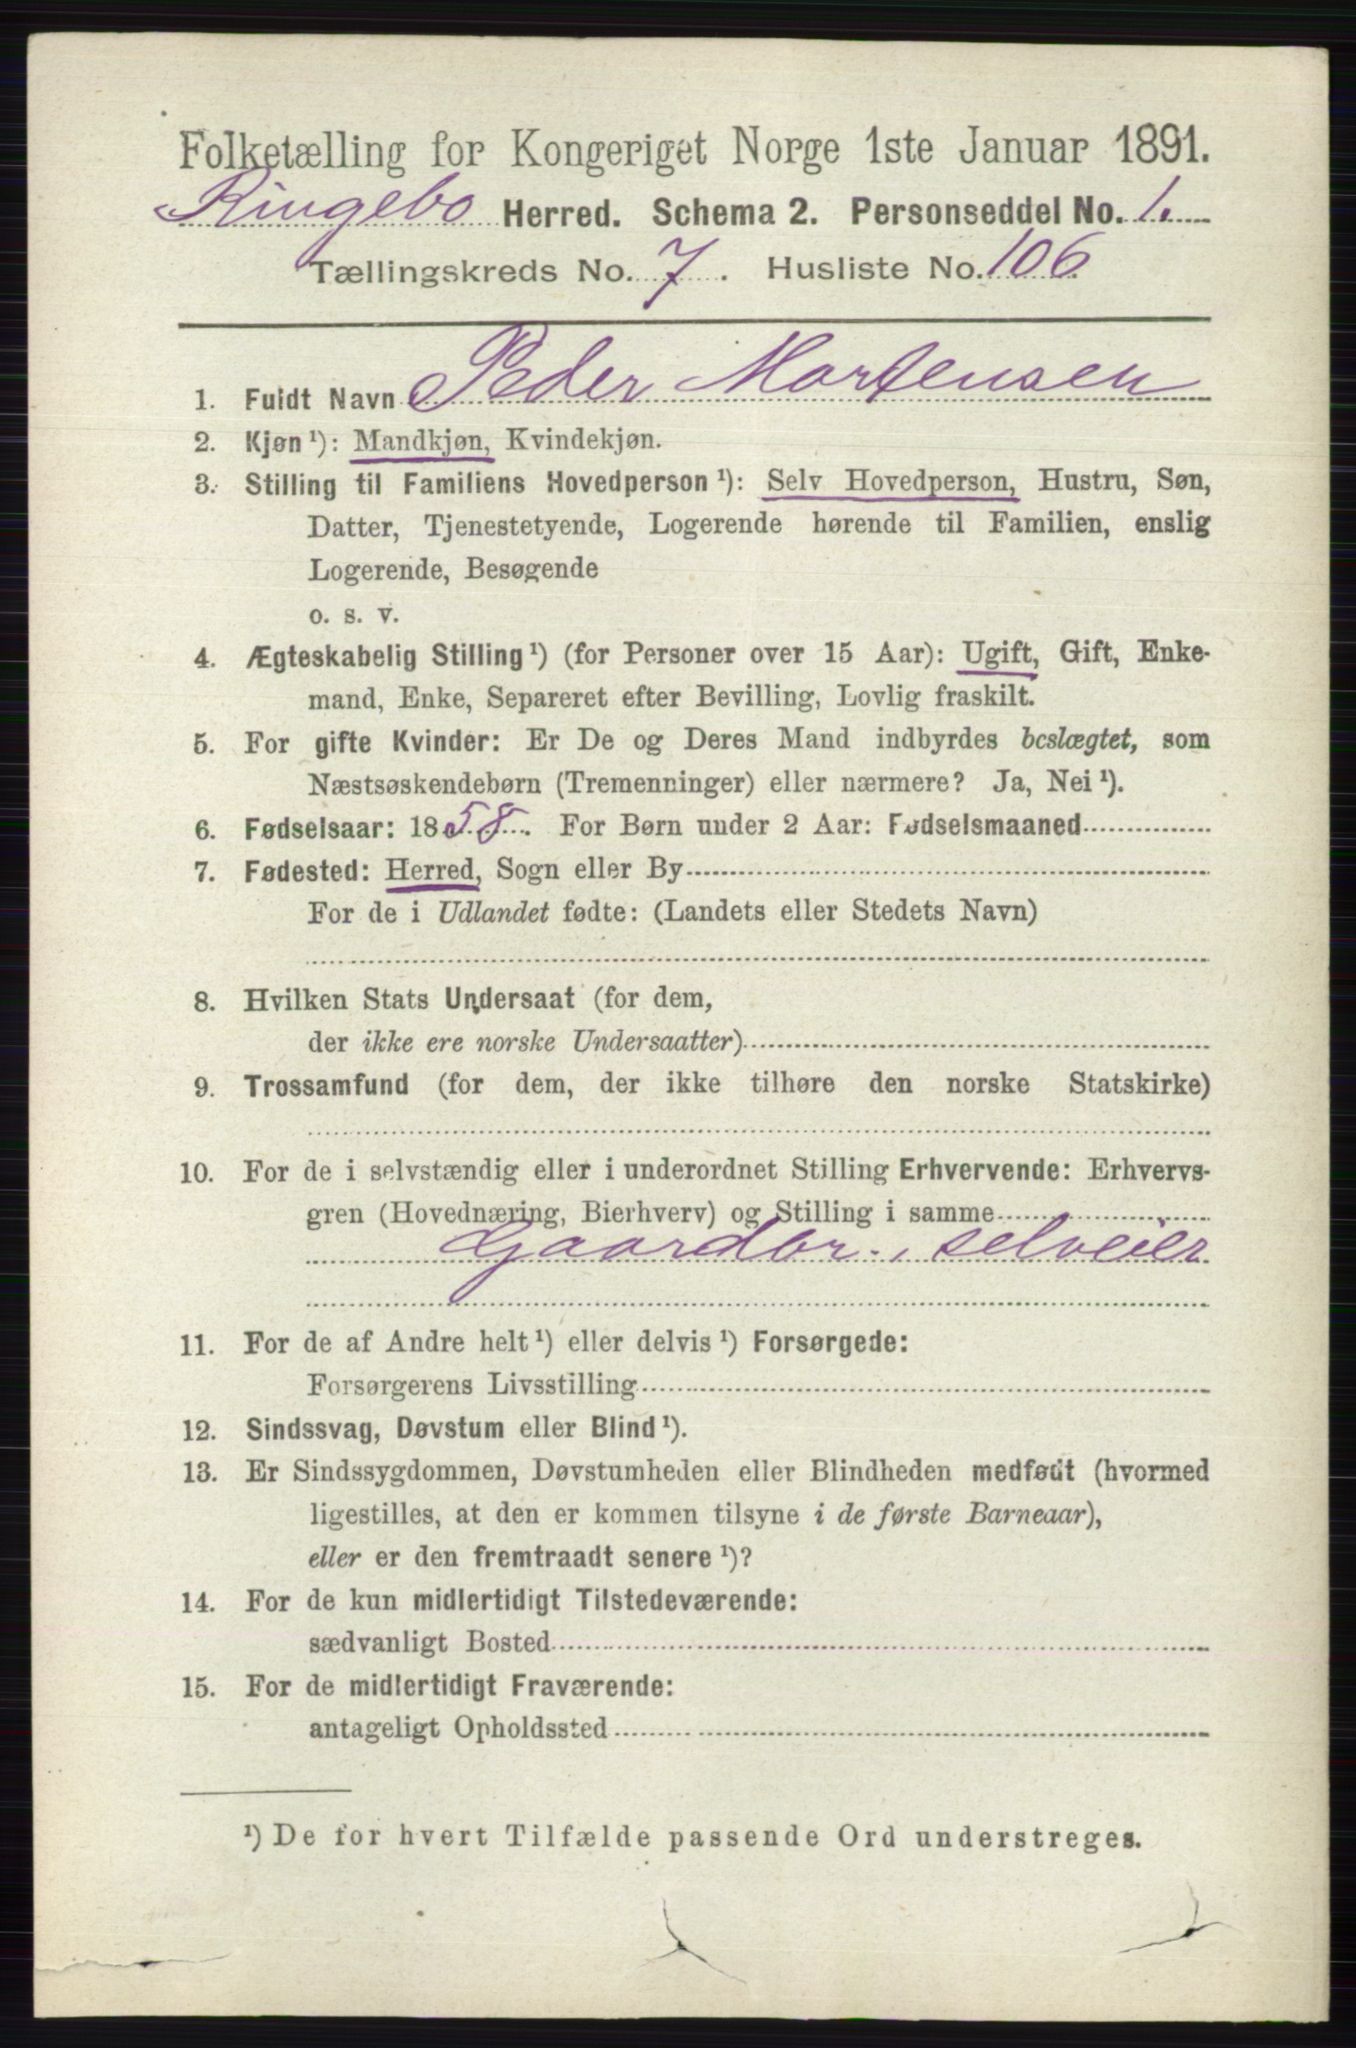 Folketælling for Kongeriget Norge 1ste Januar 1891.
Ringebo Herred. Schema 2. Personseddel No. 1.
Tællingskreds No. 7. Husliste No. 106
1. Fuldt Navn Peder Mortensen
2. Kjøn ¹): Mandkjøn, Kvindekjøn.
3. Stilling til Familiens Hovedperson ¹): Selv Hovedperson, Hustru, Søn,
Datter, Tjenestetyende, Logerende hørende til Familien, enslig
Logerende, Besøgende
o. s. v.
4. Ægteskabelig Stilling ¹) (for Personer over 15 Aar): Ugift, Gift, Enke-
mand, Enke, Separeret efter Bevilling, Lovlig fraskilt.
5. For gifte Kvinder: Er De og Deres Mand indbyrdes beslægtet, som
Næstsøskendebørn (Tremenninger) eller nærmere? Ja, Nei ¹).
6. Fødselsaar: 1858. For Børn under 2 Aar: Fødselsmaaned
7. Fødested: Herred, Sogn eller By
For de i Udlandet fødte: (Landets eller Stedets Navn)
8. Hvilken Stats Undersaat (for dem,
der ikke ere norske Undersaatter)
9. Trossamfund (for dem, der ikke tilhøre den norske Statskirke)
10. For de i selvstændig eller i underordnet Stilling Erhvervende: Erhvervs-
gren (Hovednæring, Bierhverv) og Stilling i samme
Gaardbr., selveier
11. For de af Andre helt ¹) eller delvis ¹) Forsørgede:
Forsørgerens Livsstilling
12. Sindssvag, Døvstum eller Blind ¹).
13. Er Sindssygdommen, Døvstumheden eller Blindheden medfødt (hvormed
ligestilles, at den er kommen tilsyne i de første Barneaar),
eller er den fremtraadt senere ¹)?
14. For de kun midlertidigt Tilstedeværende:
sædvanligt Bosted
15. For de midlertidigt Fraværende:
antageligt Opholdssted
¹) De for hvert Tilfælde passende Ord understreges.